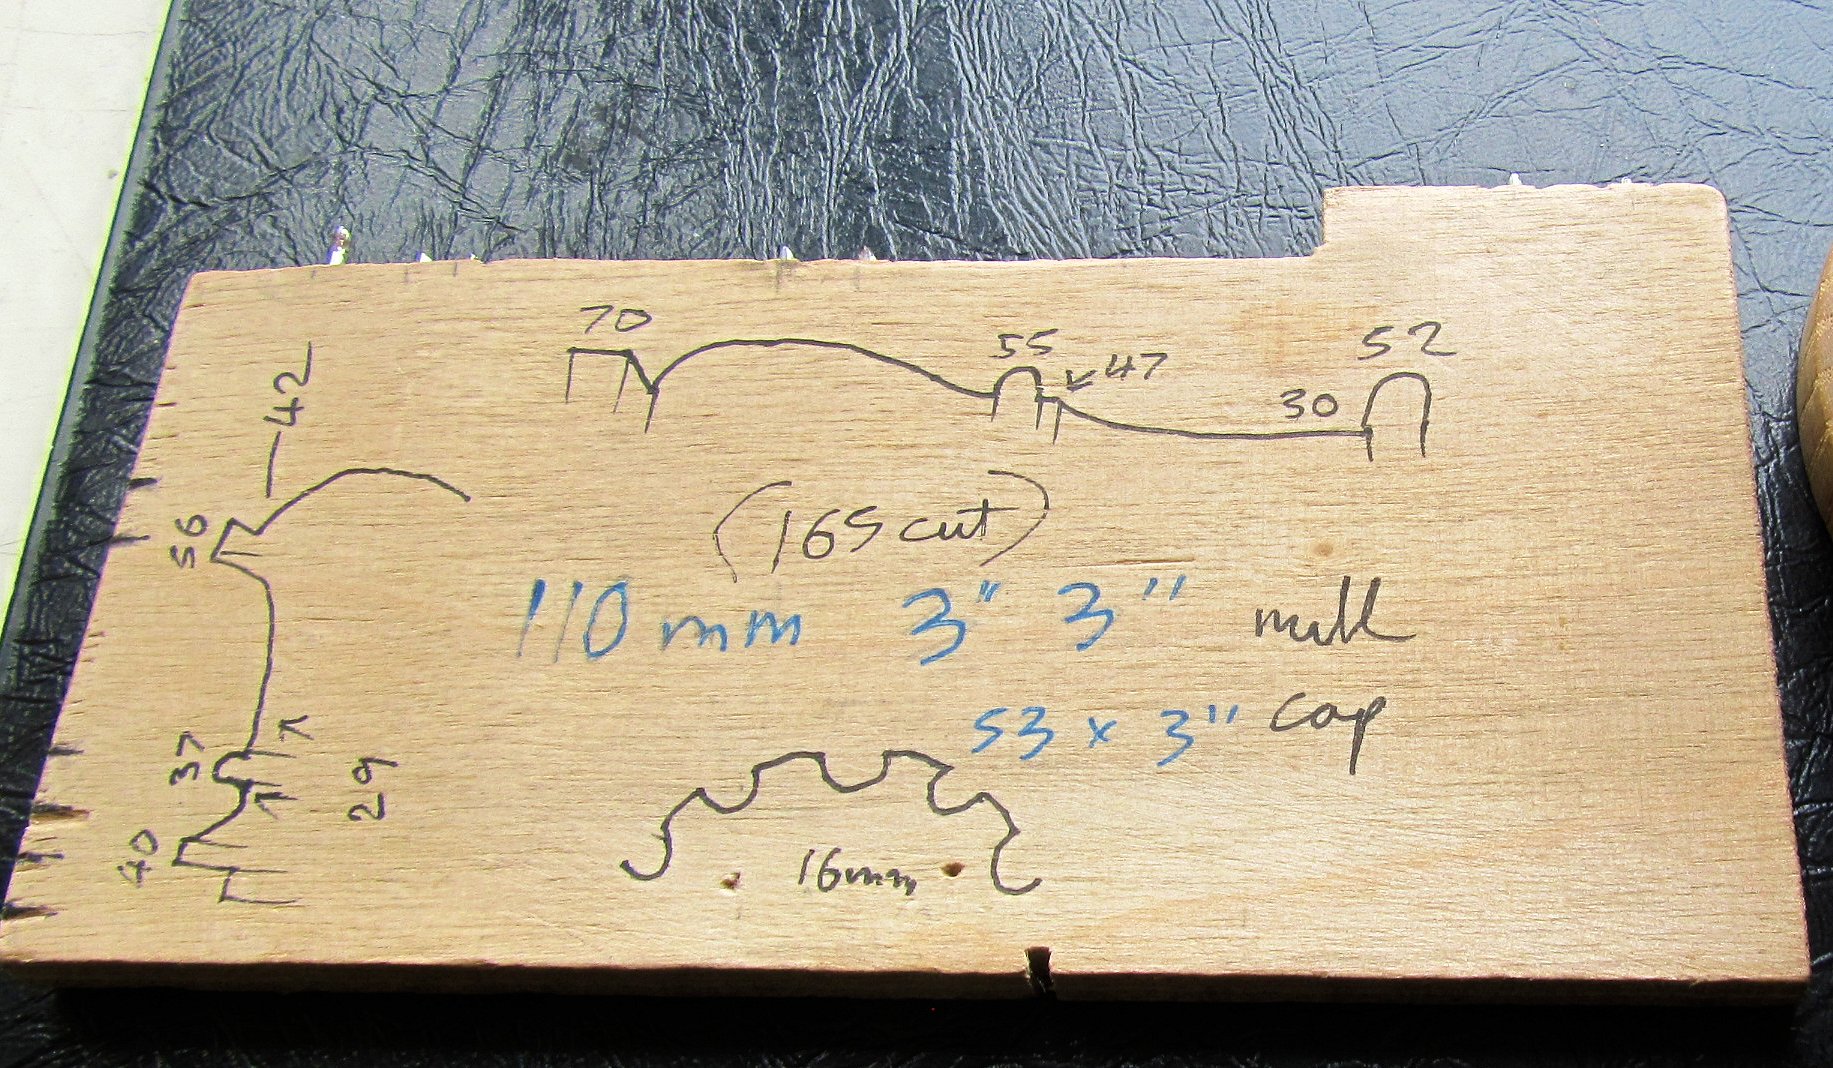 70
55
47
52
30
42
56
(165 cut)
110mm 3" 3" mill
53 x 3" cap
37
29
40
16mm